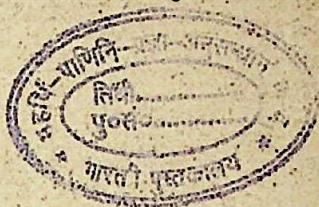 महर्षि-पाणिनि-
तिथि..............
पु०सं..............
* भारती पुस्तकालय *